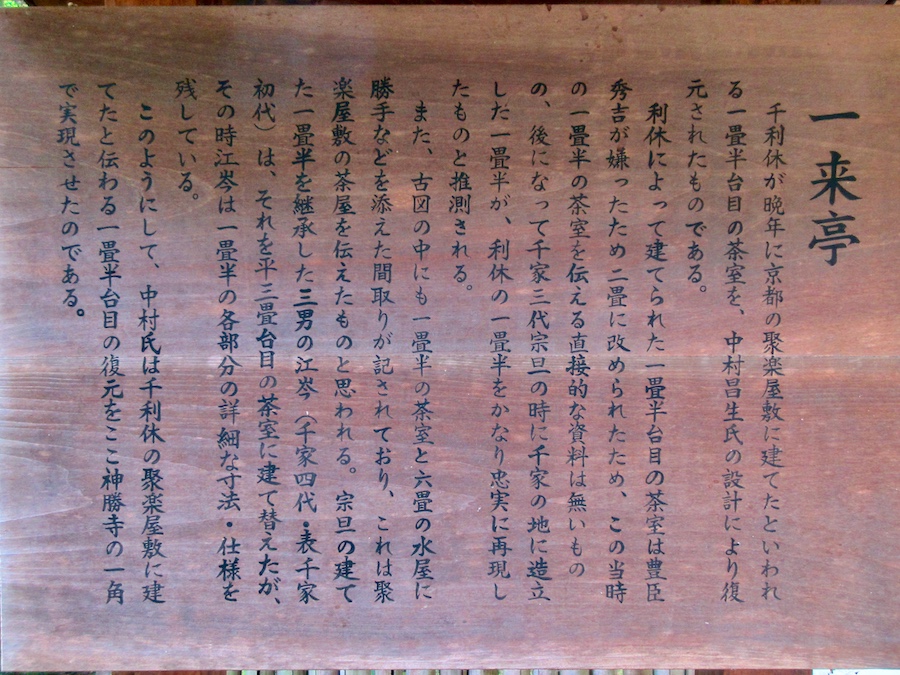 一来亭
千利休が晩年に京都の聚楽屋敷に建てたといわれ
る一畳半台目の茶室を、中村昌生氏の設計により復
元されたものである。
利休によって建てられた一畳半台目の茶室は豊臣
秀吉が嫌ったため二畳に改められたため、この当時
の一畳半の茶室を伝える直接的な資料は無いもの
の、後になって千家三代宗旦の時に千家の地に造立
した一畳半が、利休の一畳半をかなり忠実に再現し
たものと推測される。
また、古図の中にも一畳半の茶室と六畳の水屋に
勝手などを添えた間取りが記されており、これは聚
楽屋敷の茶屋を伝えたものと思われる。宗旦の建て
た一畳半を継承した三男の江岑（千家四代・表千家
初代）は、それを平三畳台目の茶室に建て替えたが、
その時江岑は一畳半の各部分の詳細な寸法・仕様を
残している。
このようにして、中村氏は千利休の聚楽屋敷に建
てたと伝わる一畳半台目の復元をここ神勝寺の一角
で実現させたのである。